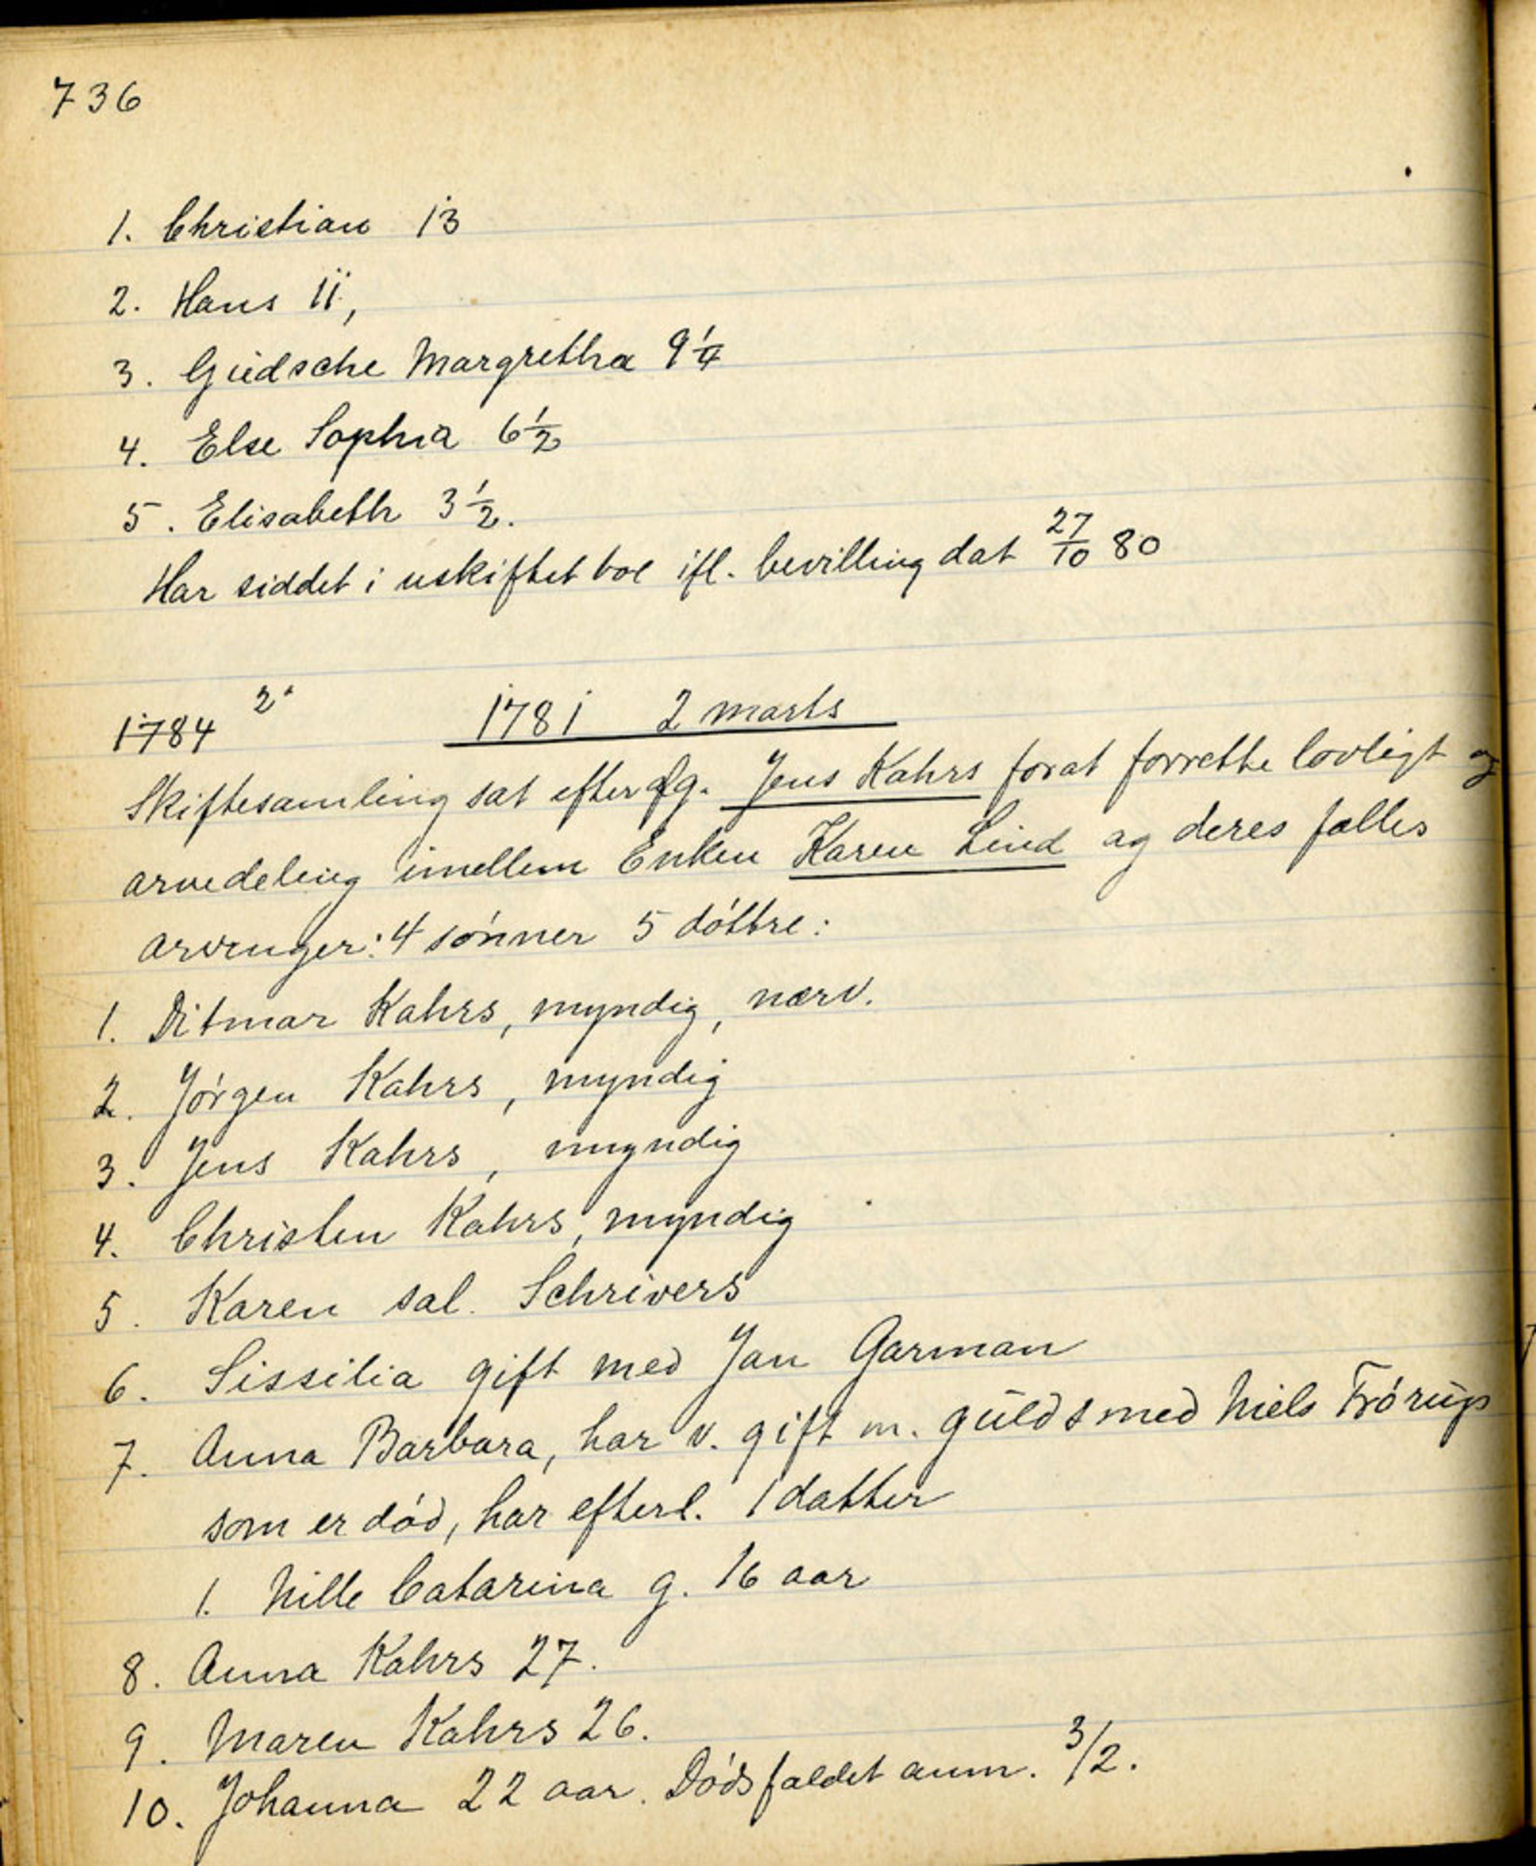 736
1. Christian 13
2. Hans 11,
3. Güdsche Margretha 9 1/4
4. Else Sophia 6 1/2
5. Elisabeth 3 1/2.
Har siddet i uskiftet bol ifl. bevilling dat 27/10 80
1784 2. 1781 2 marts
Skiftesamling sat efter fg. Jens Kahrs forat forrette lovligt og
arvedeling imellem Enken Karen Lind og deres falles
arvinger: 4 sónner 5 dóttre:
1. Ditmar Kahrs, myndig, nærv.
2. Jórgen Kahrs, myndig
3. Jens Kahrs, myndig
4. Christen Kahrs, myndig
5. Karen sal. Schrivers
6. Sissilia gift med Jan Garman
7. Anna Barbara, har v. gift m. guldsmed Niels Frórup
som er dód, har efterl. 1 datter
1. Nille Catarina g. 16 aar
8. Anna Kahrs 27.
9. Maren Kahrs 26.
10. Johanna 22 aar. Dódsfaldet anm. 3/2.